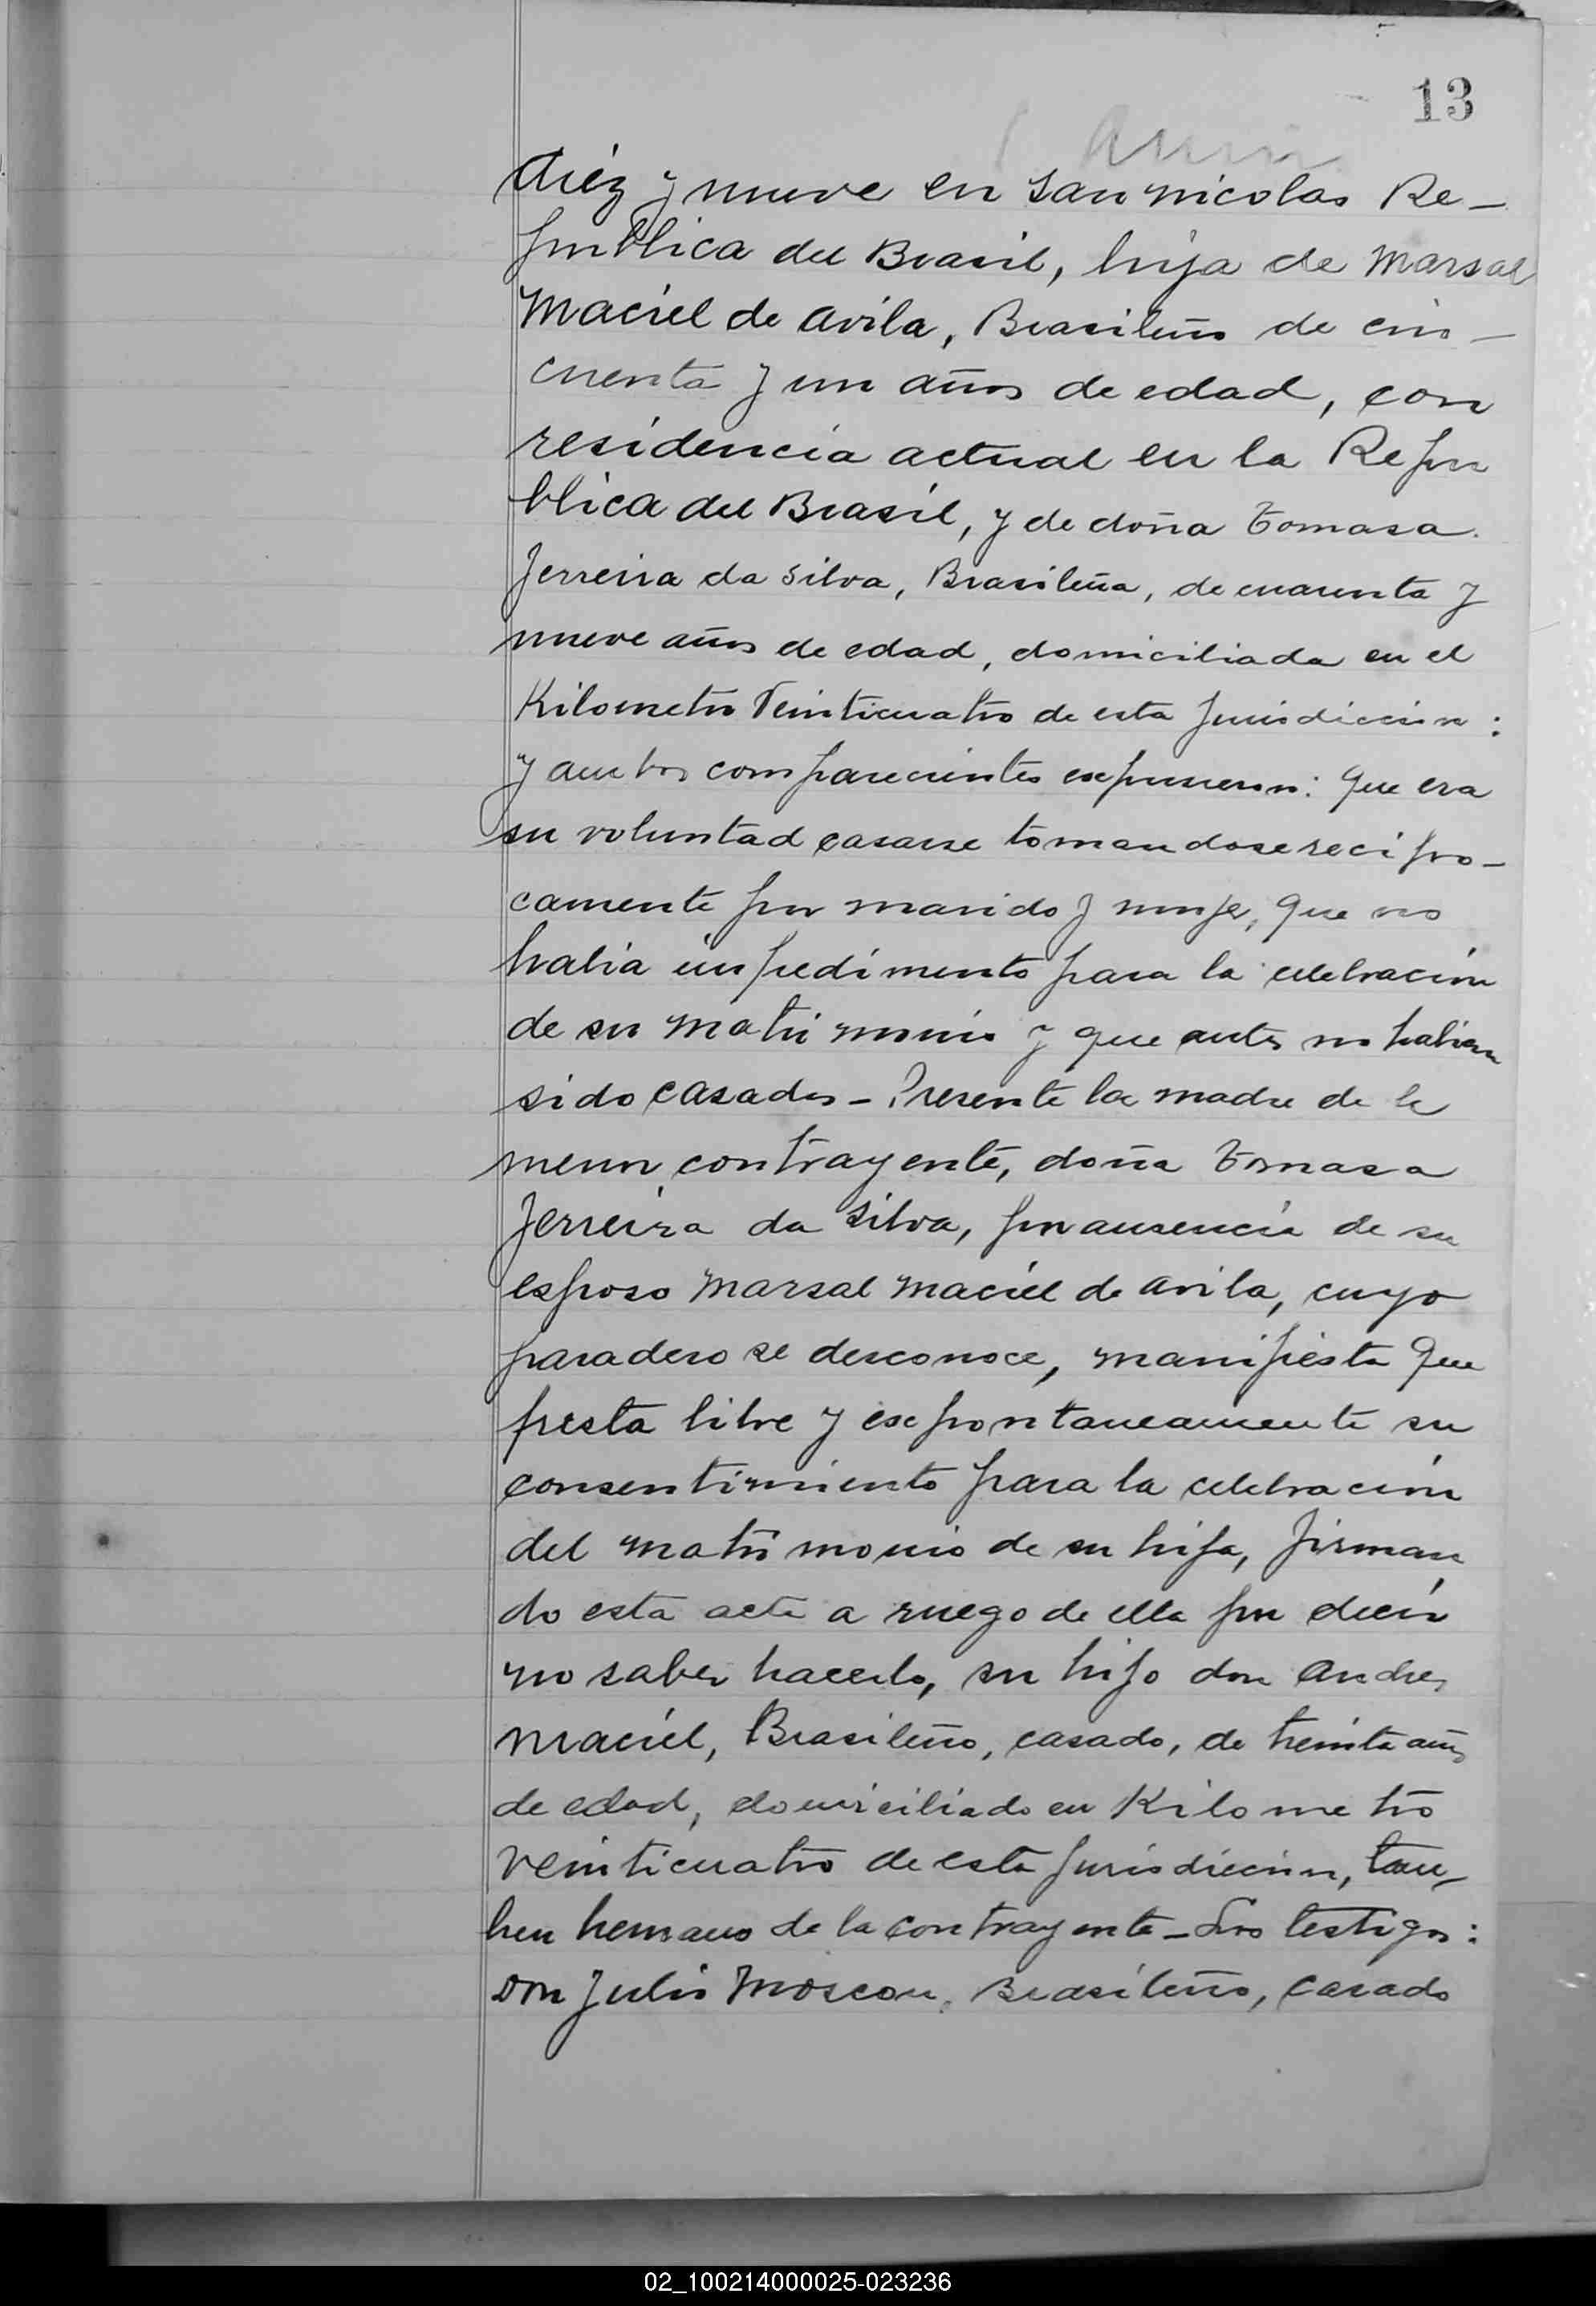 13
diéz y nueve en San Nicolas Re-
publica del Brasil, hija de Marsal
Maciel de Avila, Brasileño de cin-
cuenta y un años de edad, con
residencia actual en la Repu
blica del Brasil, y de doña Tomasa
Ferreira da Silva, Brasileña, de cuarenta y
nueve años de edad, domiciliada en el
Kilometro Veinticuatro de esta jurisdiccion:
y ambos comparecientes expusieron: que era
su voluntad casarse tomandose recipro-
camente por marido y mujer, que no
habia impedimento para la celebración
de su matrimonio y que antes no habian
sido casados - Presente la madre de la
menor contrayente, doña Tomasa
Ferreira da Silva, por ausencia de su
esposo Marsal Maciel de Avila, cuyo
paradero se desconoce, manifiesta que
presta libre y expontaneamente su
consentimiento para la celebración
del matrimonio de su hija, firman
do esta acta a ruego de ella por decir
no saber hacerlo, su hijo don Andres
Maciel, Brasileño, casado, de treinta años
de edad, domiciliado en Kilometro
veinticuatro de esta jurisdiccion, tam-
bien hermano de la contrayente - Los testigos:
Don Julio Moscon, Brasileño, casado
02_100214000025-023236